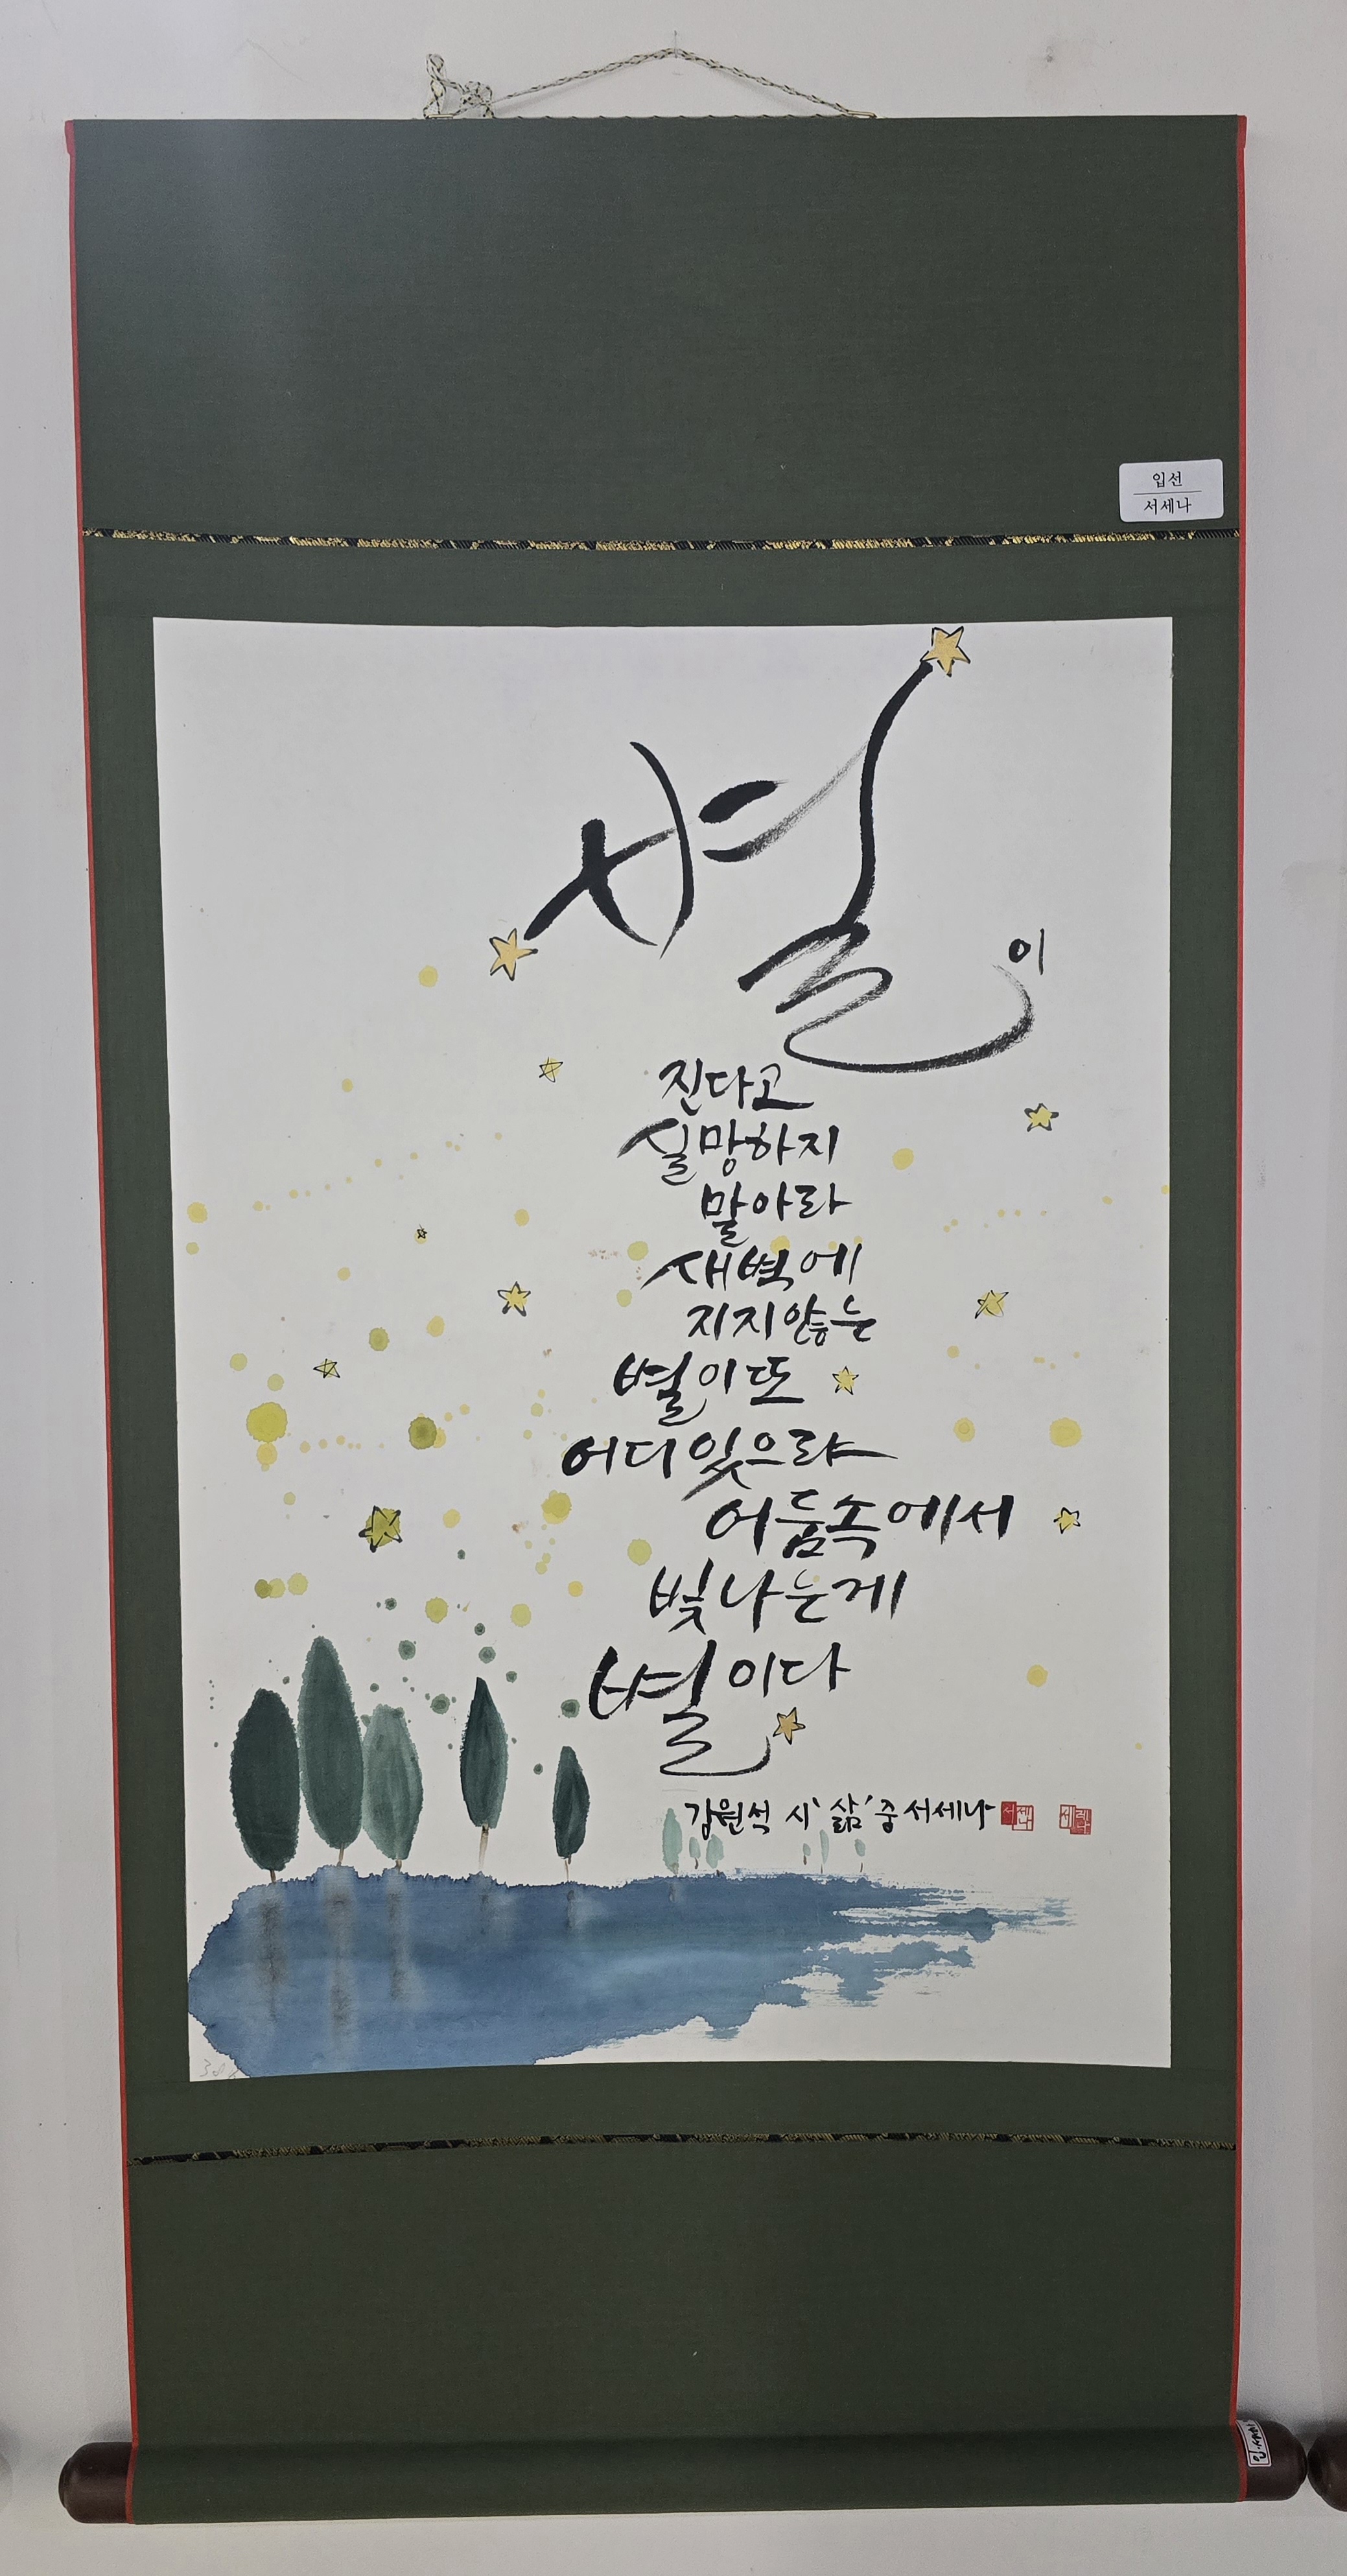 입선
서세나
별이
진다고
실망하지
말아라
새벽에
지지않는
별이 또
어디 있으랴
어둠속에서
빛나는게
별이다
김원석 시 '삶' 중 서세나